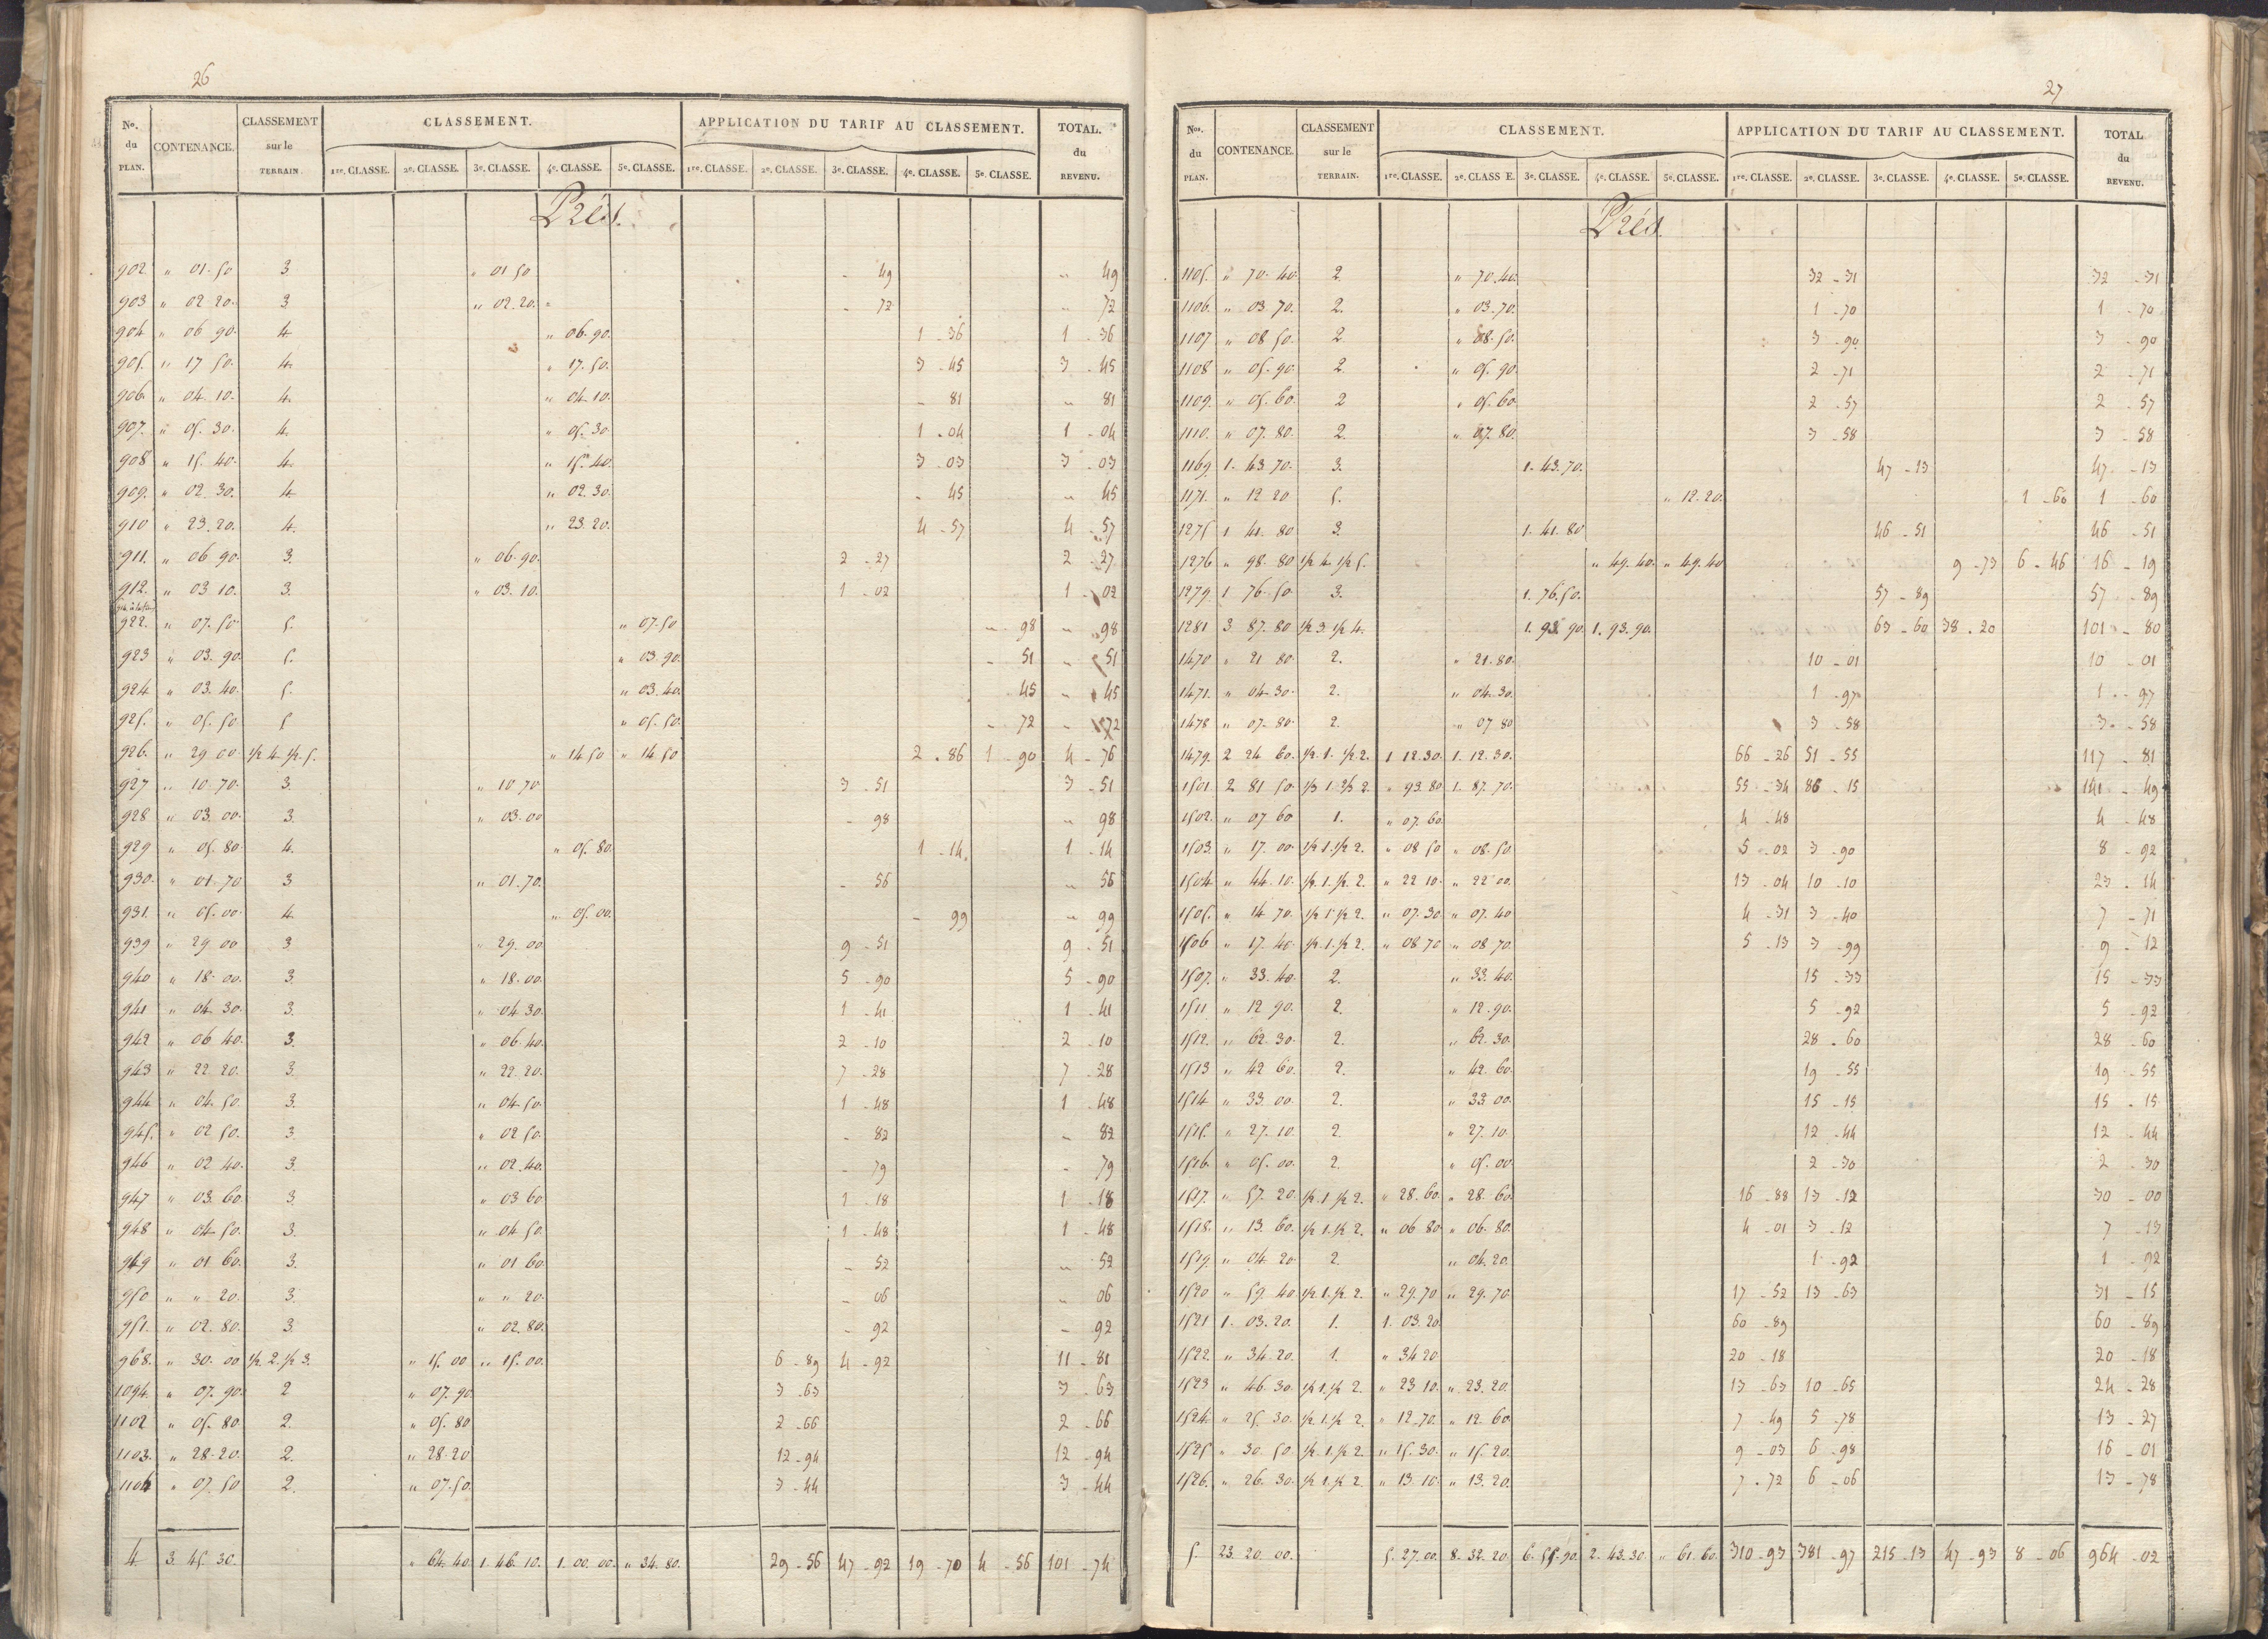 26
No. du PLAN. CONTENANCE. CLASSEMENT sur le TERRAIN. CLASSEMENT. APPLICATION DU TARIF AU CLASSEMENT. TOTAL. du REVENU.
1re. CLASSE. 2e. CLASSE. 3e. CLASSE. 4e. CLASSE. 5e. CLASSE. 1re. CLASSE. 2e. CLASSE. 3e. CLASSE. 4e. CLASSE. 5e. CLASSE.
Prés.
902 " 01.50 3. " 01 50 - 49 " 49
903 " 02 20. 3 " 02.20. - 72 " 72
904 " 06 90. 4 " 06.90. 1 - 36 1 - 36
905. " 17 50. 4. " 17.50. 3 - 45 3 - 45
906. " 04. 10. 4. " 04.10. - 81 " 81
907. " 05. 30. 4. " 05. 30 1 - 04 1 - 04
908 " 15. 40. 4. " 15. 40. 3 - 03 3 - 03
909. " 02. 30. 4. " 02.30. - 45 " 45
910 " 23.20. 4. " 23.20. 4 - 57 4 - 57
911. " 06 90. 3. " 06.90. 2 - 27 2 - 27
912. " 03 10. 3. " 03.10. 1 - 02 1 - 02
922. " 07.50 5. " 07.50 " 98 " 98
923 " 03. 90. 5. " 03 90. - 51 - 51
924 " 03. 40. 5. " 03.40. 45 - 45
925. " 05. 50 5 " 05.50. - 72 - 72
926. " 29 00 1/2 4. 1/2 5. " 14 50 " 14.50 2 - 86 1 - 90 4 - 76
927 " 10 70. 3. " 10 70 3 - 51 3 - 51
928 " 03. 00. 3. " 03.00 - 98 " 98
929 " 05. 80. 4. " 05. 80. 1 - 14. 1 - 14
930. " 01. 70 3 " 01.70. - 56 " 56
931. " 05. 00. 4. " 05. 00. - 99 " 99
939 " 29 00 3 " 29. 00 9 - 51 9 - 51
940 " 18. 00. 3. " 18.00. 5 - 90 5 - 90
941 " 04 30. 3. " 04 30. 1 - 41 1 - 41
942 " 06 40. 3. " 06.40. 2 - 10 2 - 10
943 " 22 20. 3. " 22 20. 7 - 28 7 - 28
944 " 04. 50. 3. " 04.50. 1 - 48 1 - 48
945. " 02 50. 3. " 02 50. - 82 - 82
946 " 02 40. 3. " 02.40. - 79 - 79
947 " 03. 60. 3. " 03 60 1 - 18 1 - 18
948 " 04 50. 3. " 04 50. 1 - 48 1 - 48
949 " 01 60. 3. " 01 60. - 52 " 52
950 " " 20. 3. " " 20. - 06 " 06
951. " 02. 80. 3. " 02.80. - 92 - 92
968. " 30. 00 1/2. 2. 1/2 3. " 15. 00 " 15. 00. 6 - 89 4 - 92 11 - 81
1094. " 07. 90. 2 " 07.90. 3 - 63 3 - 63
1102 " 05. 80. 2. " 05. 80 2 - 66 2 - 66
1103. " 28.20. 2. " 28.20 12 - 94 12 - 94
1104 " 07. 50 2. " 07.50. 3 - 44 3 - 44
4 3. 45. 30. " 64. 40. 1. 46. 10. 1. 00. 00. " 34. 80. 29 - 56 47 - 92 19 - 70 4 - 56 101 - 74
27
Nos. du PLAN. CONTENANCE. CLASSEMENT sur le TERRAIN. CLASSEMENT. APPLICATION DU TARIF AU CLASSEMENT. TOTAL du REVENU.
1re. CLASSE. 2e. CLASS E. 3e. CLASSE. 4e. CLASSE. 5e. CLASSE. 1re. CLASSE. 2e. CLASSE. 3e. CLASSE. 4e. CLASSE. 5e. CLASSE.
Prés.
1105. " 70. 40. 2. " 70.40. 32 - 31 32 - 31
1106. " 03. 70. 2. " 03.70. 1 - 70 1 - 70
1107 " 08 50. 2. " 08.50. 3 - 90 3 - 90
1108 " 05. 90. 2. " 05. 90. 2 - 71 2 - 71
1109. " 05. 60. 2 " 05. 60. 2 - 57 2 - 57
1110. " 07. 80. 2. " 07.80. 3 - 58 3 - 58
1169. 1. 43 70. 3. 1. 43.70. 47 - 13 47 - 13
1171. " 12 20 5. " 12.20. 1 - 60 1 - 60
1275 1. 41. 80 3. 1. 41. 80 46 - 51 46 - 51
1276 " 98. 80 1/2 4. 1/2 5. " 49. 40. " 49. 40 9 - 73 6 - 46 16 - 19
1279. 1 76. 50. 3. 1. 76.50. 57 - 89 57 - 89
1281 3. 87. 80 1/2 3. 1/2 4. 1. 93. 90. 1. 93. 90. 63 - 60 38 - 20 101 - 80
1470 " 21 80. 2. " 21.80. 10 - 01 10 - 01
1471. " 04 30. 2. " 04.30. 1 - 97 1 - 97
1478 " 07. 80. 2. " 07 80 3 - 58 3 - 58
1479. 2 24 60. 1/2. 1. 1/2 2. 1 12.30. 1. 12. 30. 66 - 26 51 - 55 117 - 81
1501 2 81 50. 1/3 1. 2/3 2. " 93. 80. 1. 87. 70. 55 - 34 86 - 15 141 - 49
1502. " 07 60 1. " 07. 60. 4 - 48 4 - 48
1503. " 17. 00. 1/2 1. 1/2 2. " 08 50 " 08. 50. 5 - 02 3 - 90 8 - 92
1504. " 44. 10. 1/2. 1. 1/2. 2. " 22 10. " 22 00. 13 - 04 10 - 10 23 - 14
1505. " 14 70. 1/2 1. 1/2 2. " 07.30. " 07. 40 4 - 31 3 - 40 7 - 71
1506 " 17. 40. 1/2. 1. 1/2 2. " 08 70 " 08. 70. 5 - 13 3 - 99 9 - 12
1507. " 33. 40. 2. " 33. 40. 15 - 33 15 - 33
1511 " 12 90. 2. " 12.90. 5 - 92 5 - 92
1512. " 62. 30. 2. " 62. 30. 28 - 60 28 - 60
1513 " 42 60. 2. " 42. 60. 19 - 55 19 - 55
1514 " 33 00. 2. " 33 00. 15 - 15 15 - 15
1515. " 27. 10. 2. " 27. 10. 12 - 44 12 - 44
1516 " 05. 00. 2. " 05. 00. 2 - 30 2 - 30
1517. " 57. 20. 1/2. 1. 1/2 2. " 28. 60. " 28. 60. 16 - 88 13 - 12 30 - 00
1518. " 13. 60. 1/2 1. 1/2 2. " 06 80 " 06. 80. 4 - 01 3 - 12 7 - 13
1519. " 04 20. 2. " 04. 20. 1 - 92 1 - 92
1520 " 59. 40 1/2 1. 1/2 2. " 29.70 " 29. 70. 17 - 52 13 - 63 31 - 15
1521 1. 03. 20. 1. 1. 03. 20. 60 - 89 60 - 89
1522. " 34. 20. 1. " 34 20 20 - 18 20 - 18
1523 " 46. 30. 1/2 1. 1/2 2. " 23 10. " 23. 20. 13 - 63 10 - 65 24 - 28
1524. " 25. 30. 1/2 1. 1/2 2. " 12.70. " 12. 60 7 - 49 5 - 78 13 - 27
1525 " 30. 50 1/2. 1. 1/2 2. " 15. 30. " 15. 20. 9 - 03 6 - 98 16 - 01
1526. " 26. 30. 1/2 1. 1/2 2. " 13. 10. " 13. 20. 7 - 72 6 - 06 13 - 78
5. 23. 20. 00. 5. 27. 00. 8. 32. 20. 6. 55. 90. 2. 43. 30. " 61. 60. 310 - 93 381 - 97 215 - 13 47 - 93 8 - 06 964 - 02